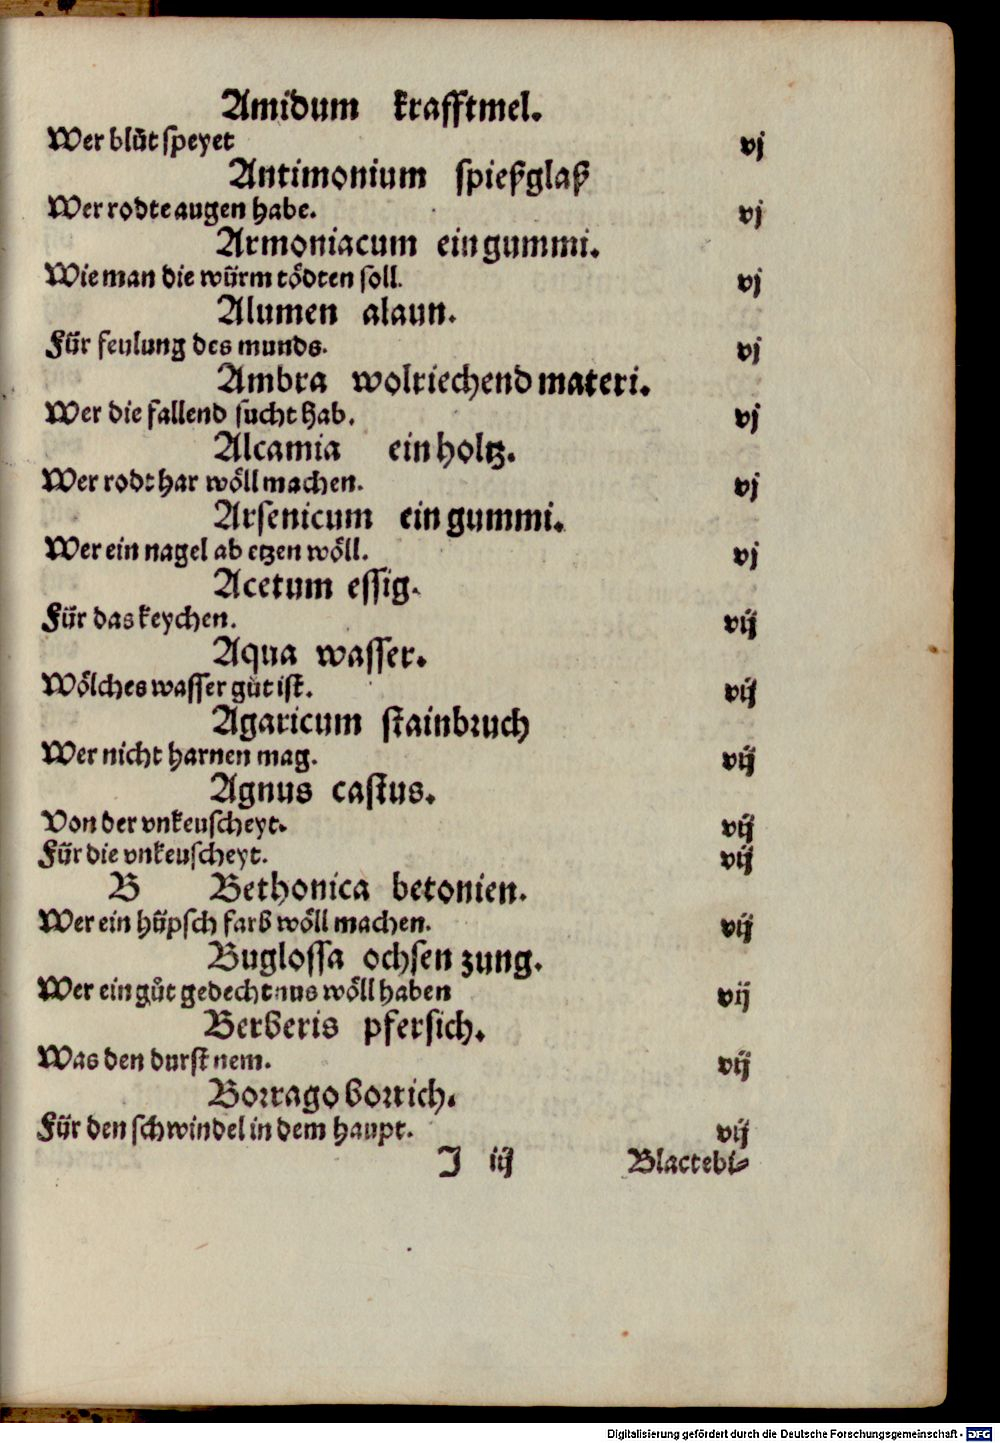 Amidum krafftmel.
Wer blůt speyet vj
Antimonium spießglaß
Wer rodte augen habe. vj
Armoniacum ein gummi.
Wie man die würm tödten soll. vj
Alumen alaun.
Für feulung des munds. vj
Ambra wolriechend materi.
Wer die fallend sucht hab. vj
Alcamia ein holtz.
Wer rodt har wöll machen. vj
Arsenicum ein gummi.
Wer ein nagel ab etzen wöll. vj
Acetum essig.
Für das keychen. vij
Aqua wasser.
Wölches wasser gůt ist. vij
Agaricum stainbruch
Wer nicht harnen mag. vij
Agnus castus.
Von der vnkeuscheyt. vij
Für die vnkeuscheyt. vij
B Bethonica betonien.
Wer ein hüpsch farb wöll machen. vij
Buglossa ochsen zung.
Wer ein gůt gedechtnus wöll haben vij
Berberis pfersich.
Was den durst nem. vij
Borrago borrich.
Für den schwindel in dem haupt. vij
J iij Blactebi⸗
Digitalisierung gefördert durch die Deutsche Forschungsgemeinschaft - DFG